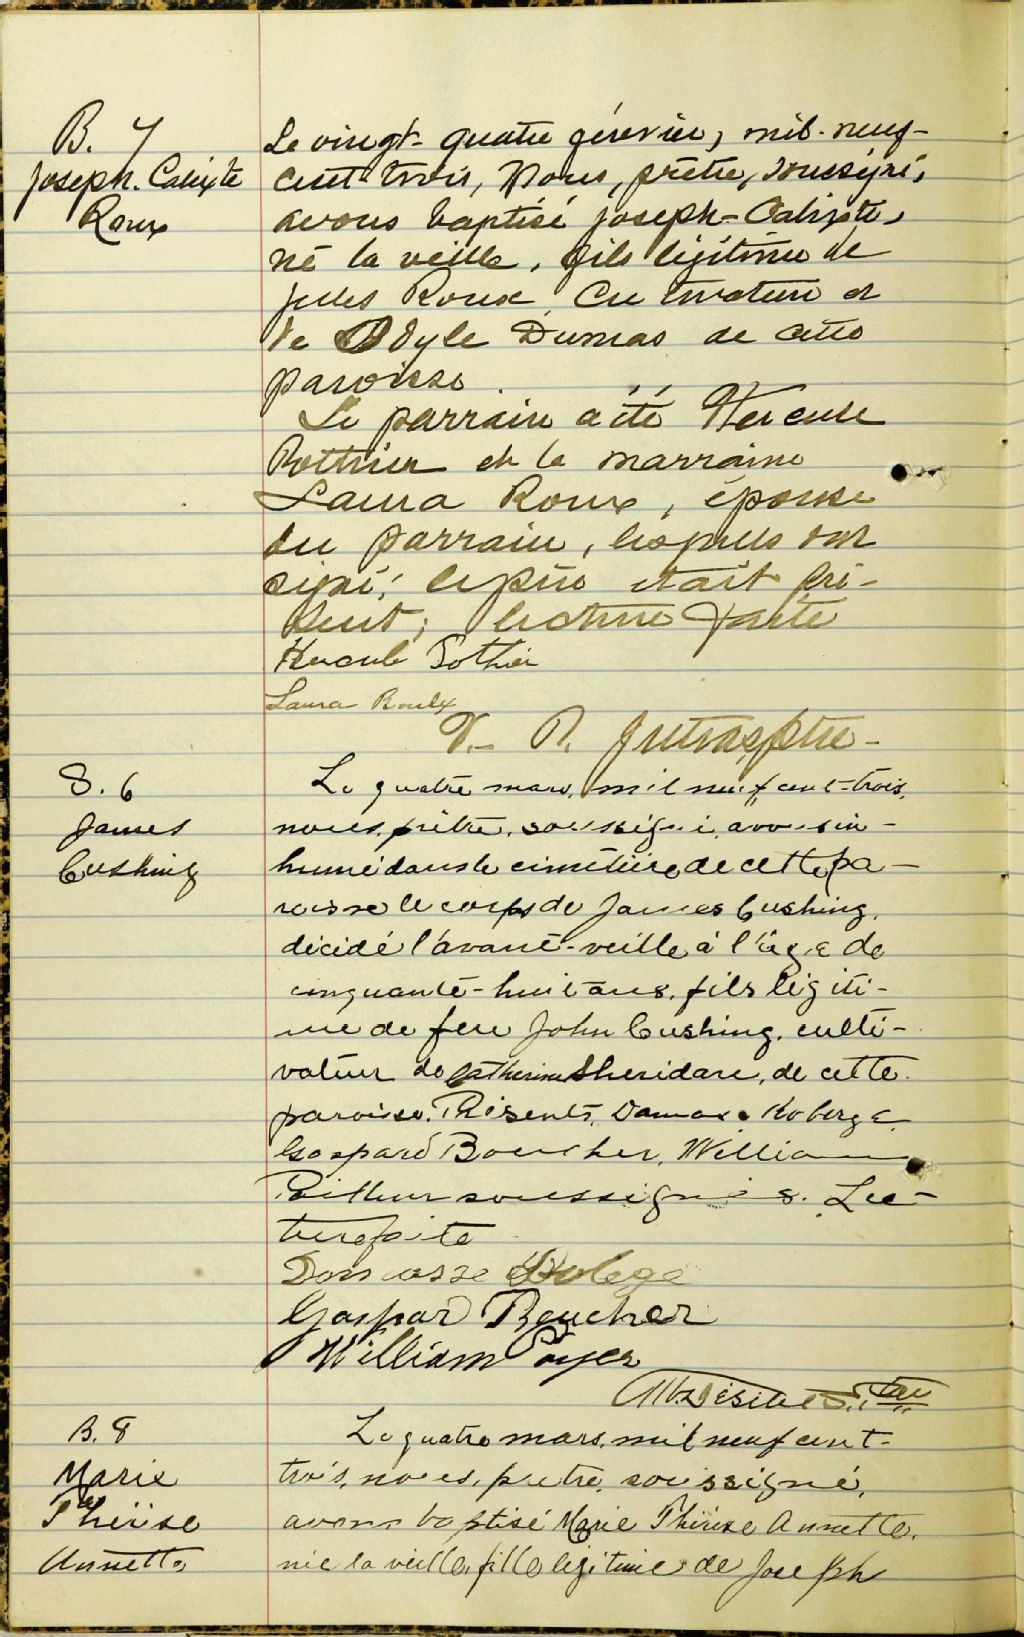 B. 7
Joseph. Calixte
Roux
Le vingt-quatre février, mil-neuf-
cent-trois, Nous, prêtre, soussigné,
avons baptisé Joseph-Calixte,
né la veille, fils légitime de
Jules Roux, cultivateur et
de Odyle Dumas de cette
paroisse.
Le parrain a été Hercule
Pothier et la marraine
Laura Roux, épouse
du parrain, lesquels ont
signé; le père était pré-
sent; lecture faite
Hercule Pothier
Laura Roulx
V. P. Jutras, ptre-
S. 6
James
Cushing
Le quatre mars, mil neuf cent-trois,
nous, prêtre, soussigné, avons in-
humé dans le cimetière de cette pa-
roisse le corps de James Cushing,
décédé l'avant-veille à l'âge de
cinquante-huit ans, fils légiti-
me de feu John Cushing, culti-
vateur de Catherine Sheridan, de cette
paroisse. Présents, Damase Roberge,
Gaspard Boucher, William
soussignés. Lec-
ture faite
Gaspard Boucher
William
B. 8
Marie
Thérèse
Annette
Le quatre mars, mil neuf cent-
trois, nous, prêtre, soussigné,
avons baptisé Marie Thérèse Annette,
née la veille, fille légitime de Joseph